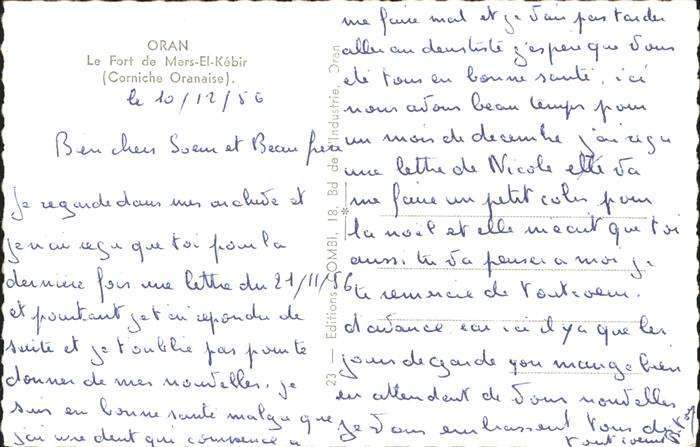 ORAN
Le Fort de Mers-El-Kébir
(Corniche Oranaise).
le 10/12/56
Bien chers Soeur et Beau frère
Je regarde dans mes archive et
je n'ai reçu que toi pour la
dernière fois une lettre du 21/11/56
et pourtant je t'ai repondu de
suite et je t'oublie pas pour te
donner de mes nouvelles. je
suis en bonne santé malgré que
j'ai une dent qui commence a
23 — Editions COMBI, 18, Bd de l'Industrie, Oran
me faire mal et je vais pas tarder
aller au dentiste j'espere que vous
ete tous en bonne santé, ici
nous avons beau temps pour
un mois de decembre j'ai reçu
une lettre de Nicole elle va
me faire un petit colis pour
la noël et elle m'ecrit que toi
aussi tu va penser a moi je
te remercie de tout coeur
d'avance car ici il y a que les
jours de garde qu'on mange bien
en attendent de vous nouvelles
je vous embrassent tous du
tout coeur